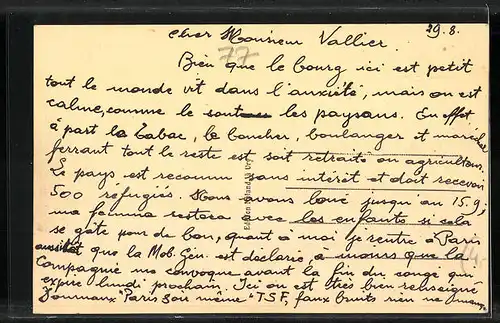 29.8.
Cher Monsieur Vallier.
77
Bien que le bourg ici est petit
tout le monde vit dans l'anxiété, mais on est
calme, comme le sont les paysans. En effet
à part le tabac, le boucher, boulanger et maréchal
ferrant tout le reste est soit retraité ou agriculteur.
Le pays est reconnu sans intérêt et doit recevoir
500 réfugiés. Nous avons loué jusqu'au 15.9,
ma femme restera avec les enfants si cela
se gâte pour de bon, quant à moi je rentre à Paris
aussitôt que la Mob. Gén. est déclarée, à moins que la
Compagnie me convoque avant la fin du congé qui
expire lundi prochain. Ici on est très bien renseigné
Journaux "Paris Soir même" T.S.F, faux bruits rien ne manque